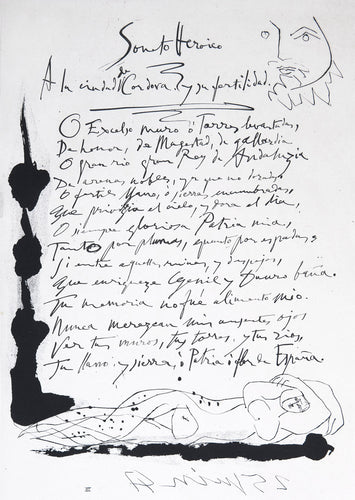 Soneto Heroico
A la ciudad de Cordova y su fertilidad.
O Excelso muro ò Torres levantadas,
De honor, de Magestad, de gallardia
O gran rio gran Rey de Andaluzia
De arenas nobles, ya que no doradas
O fertil llano, ò sierras encumbradas,
Que privilegia el cielo, y dora el dia,
O siempre gloriosa Patria mia,
Tanto por plumas, quanto por espadas,
Si entre aquellas ruinas, y despojos,
Que enriqueze Genil y Dauro baña.
Tu memoria no fue alimento mio.
Nunca merezcan mis ausentes ojos
Ver tus muros, tus torres, y tus rios,
Tu llano, y sierra, ò Patria ò flor de España.
25 juin 47
II